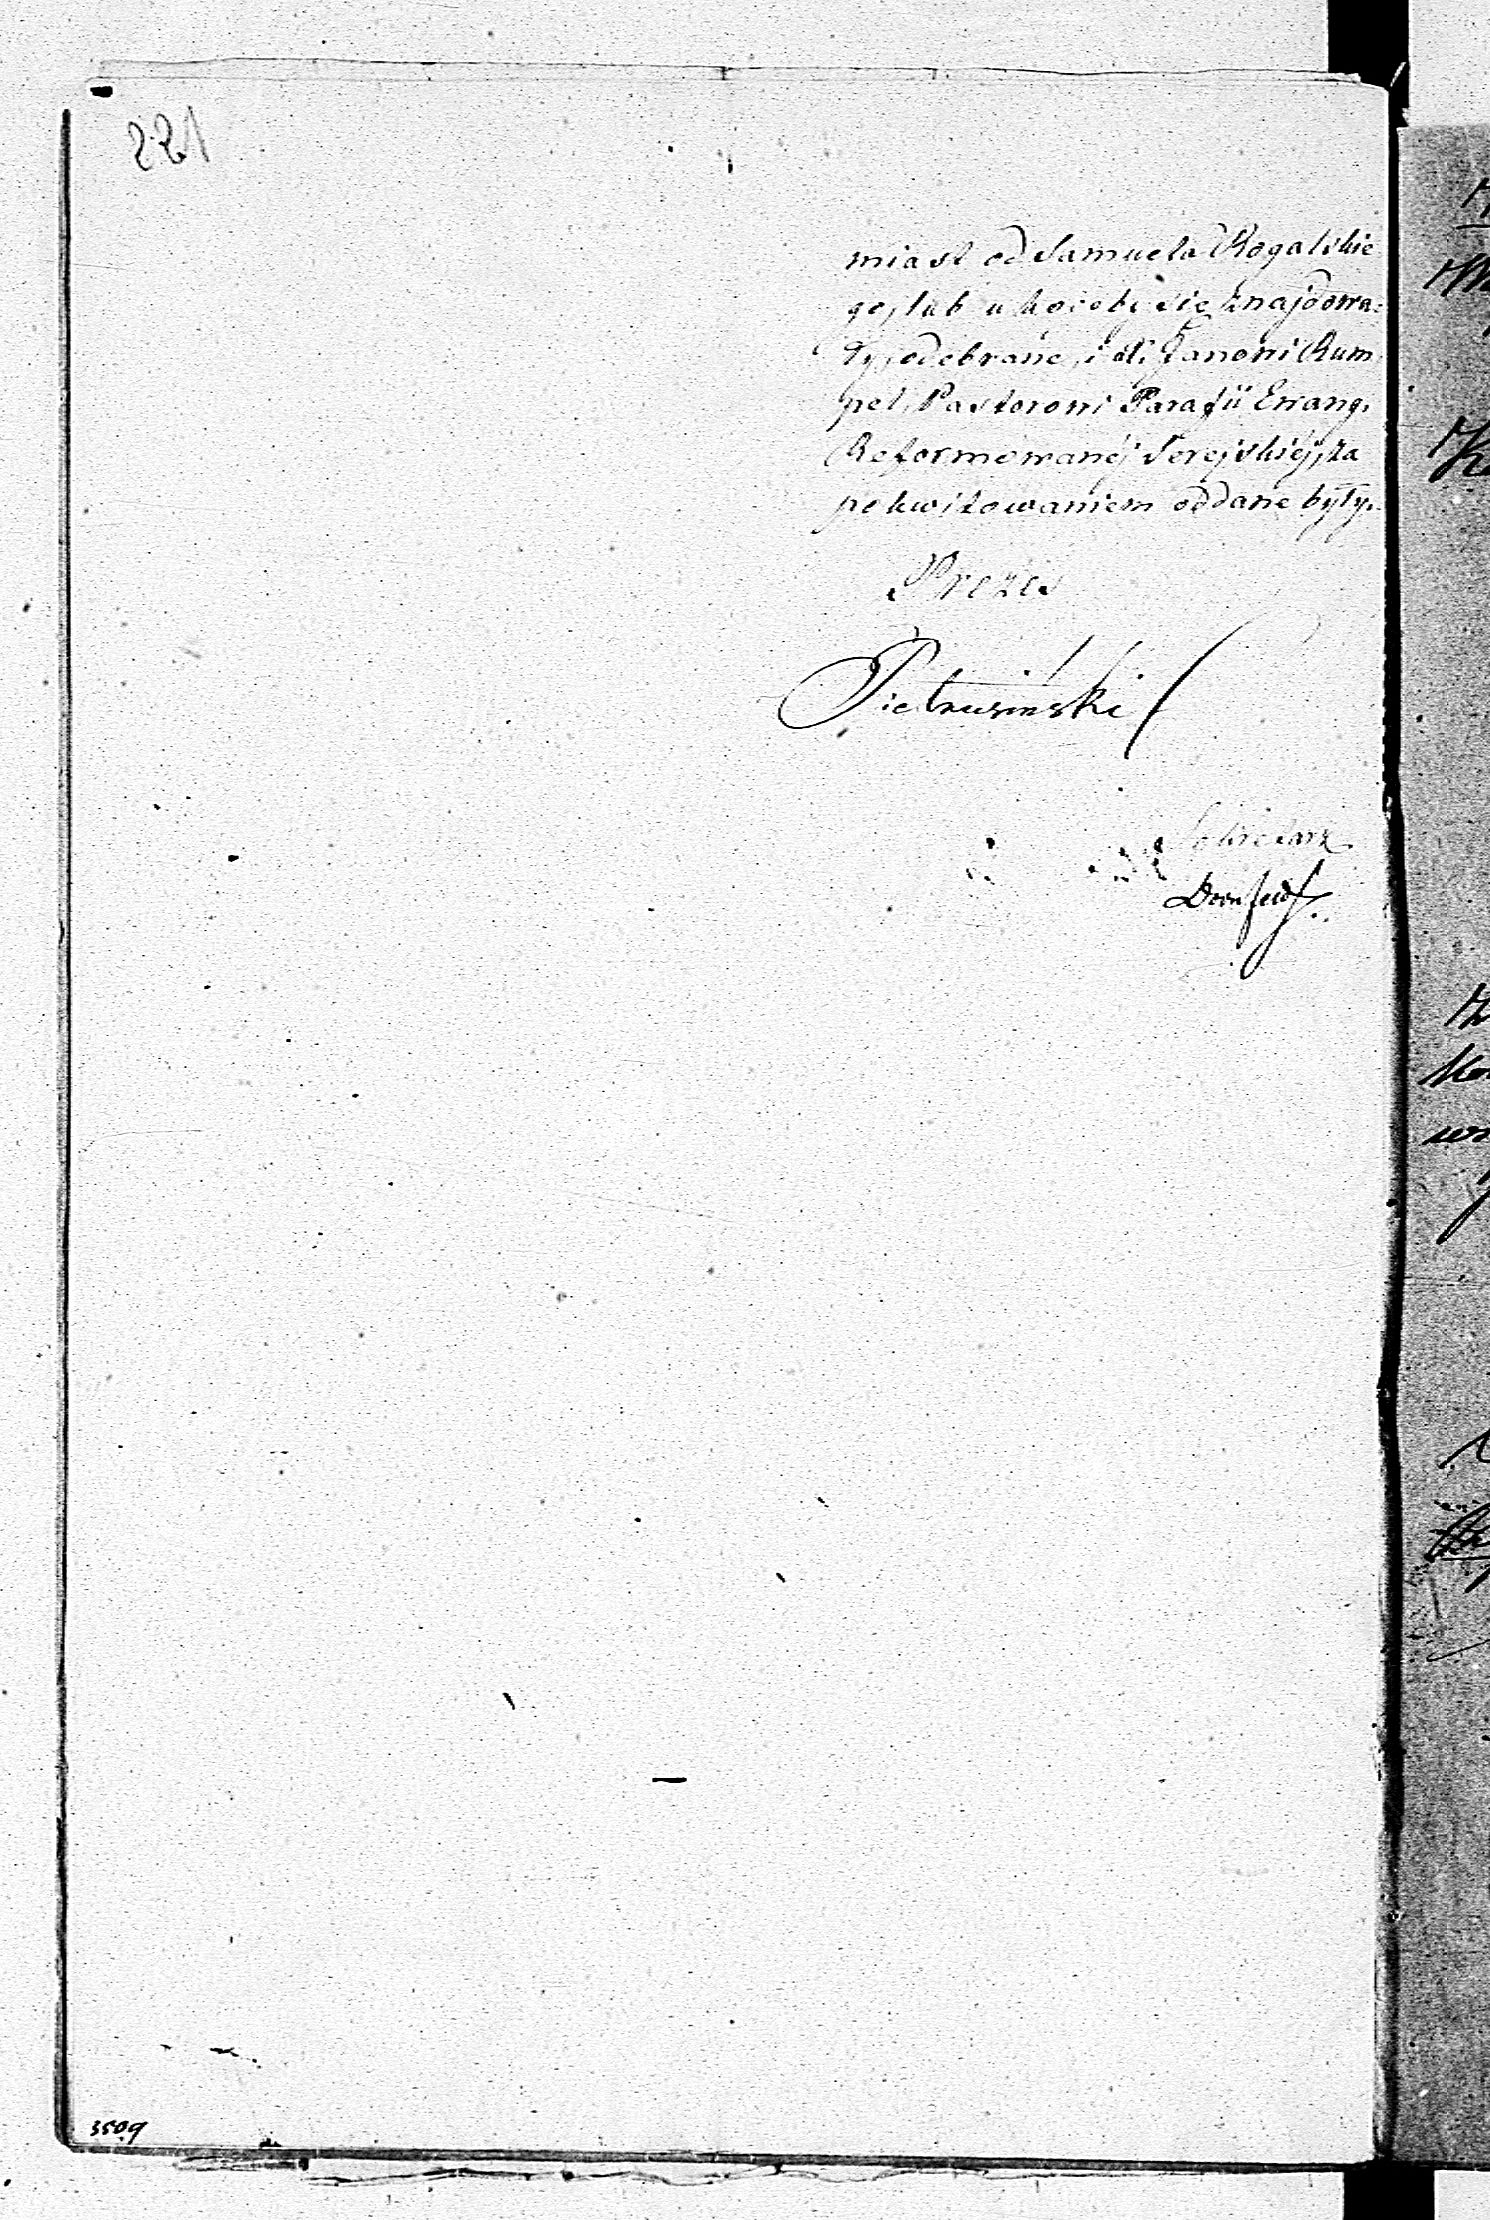 221
miast od Samuela Rogalskie
go, lub u kogoby się znajdowa=
ły, odebrane, i Xi. Janowi Rum
pel, Pastorowi Parafii Ewang.
Reformowanéj Serejskiéj, za
pokwitowaniem oddane były.
Prezes
Pietrusiński
Sekretarz
Dornfeld
3509